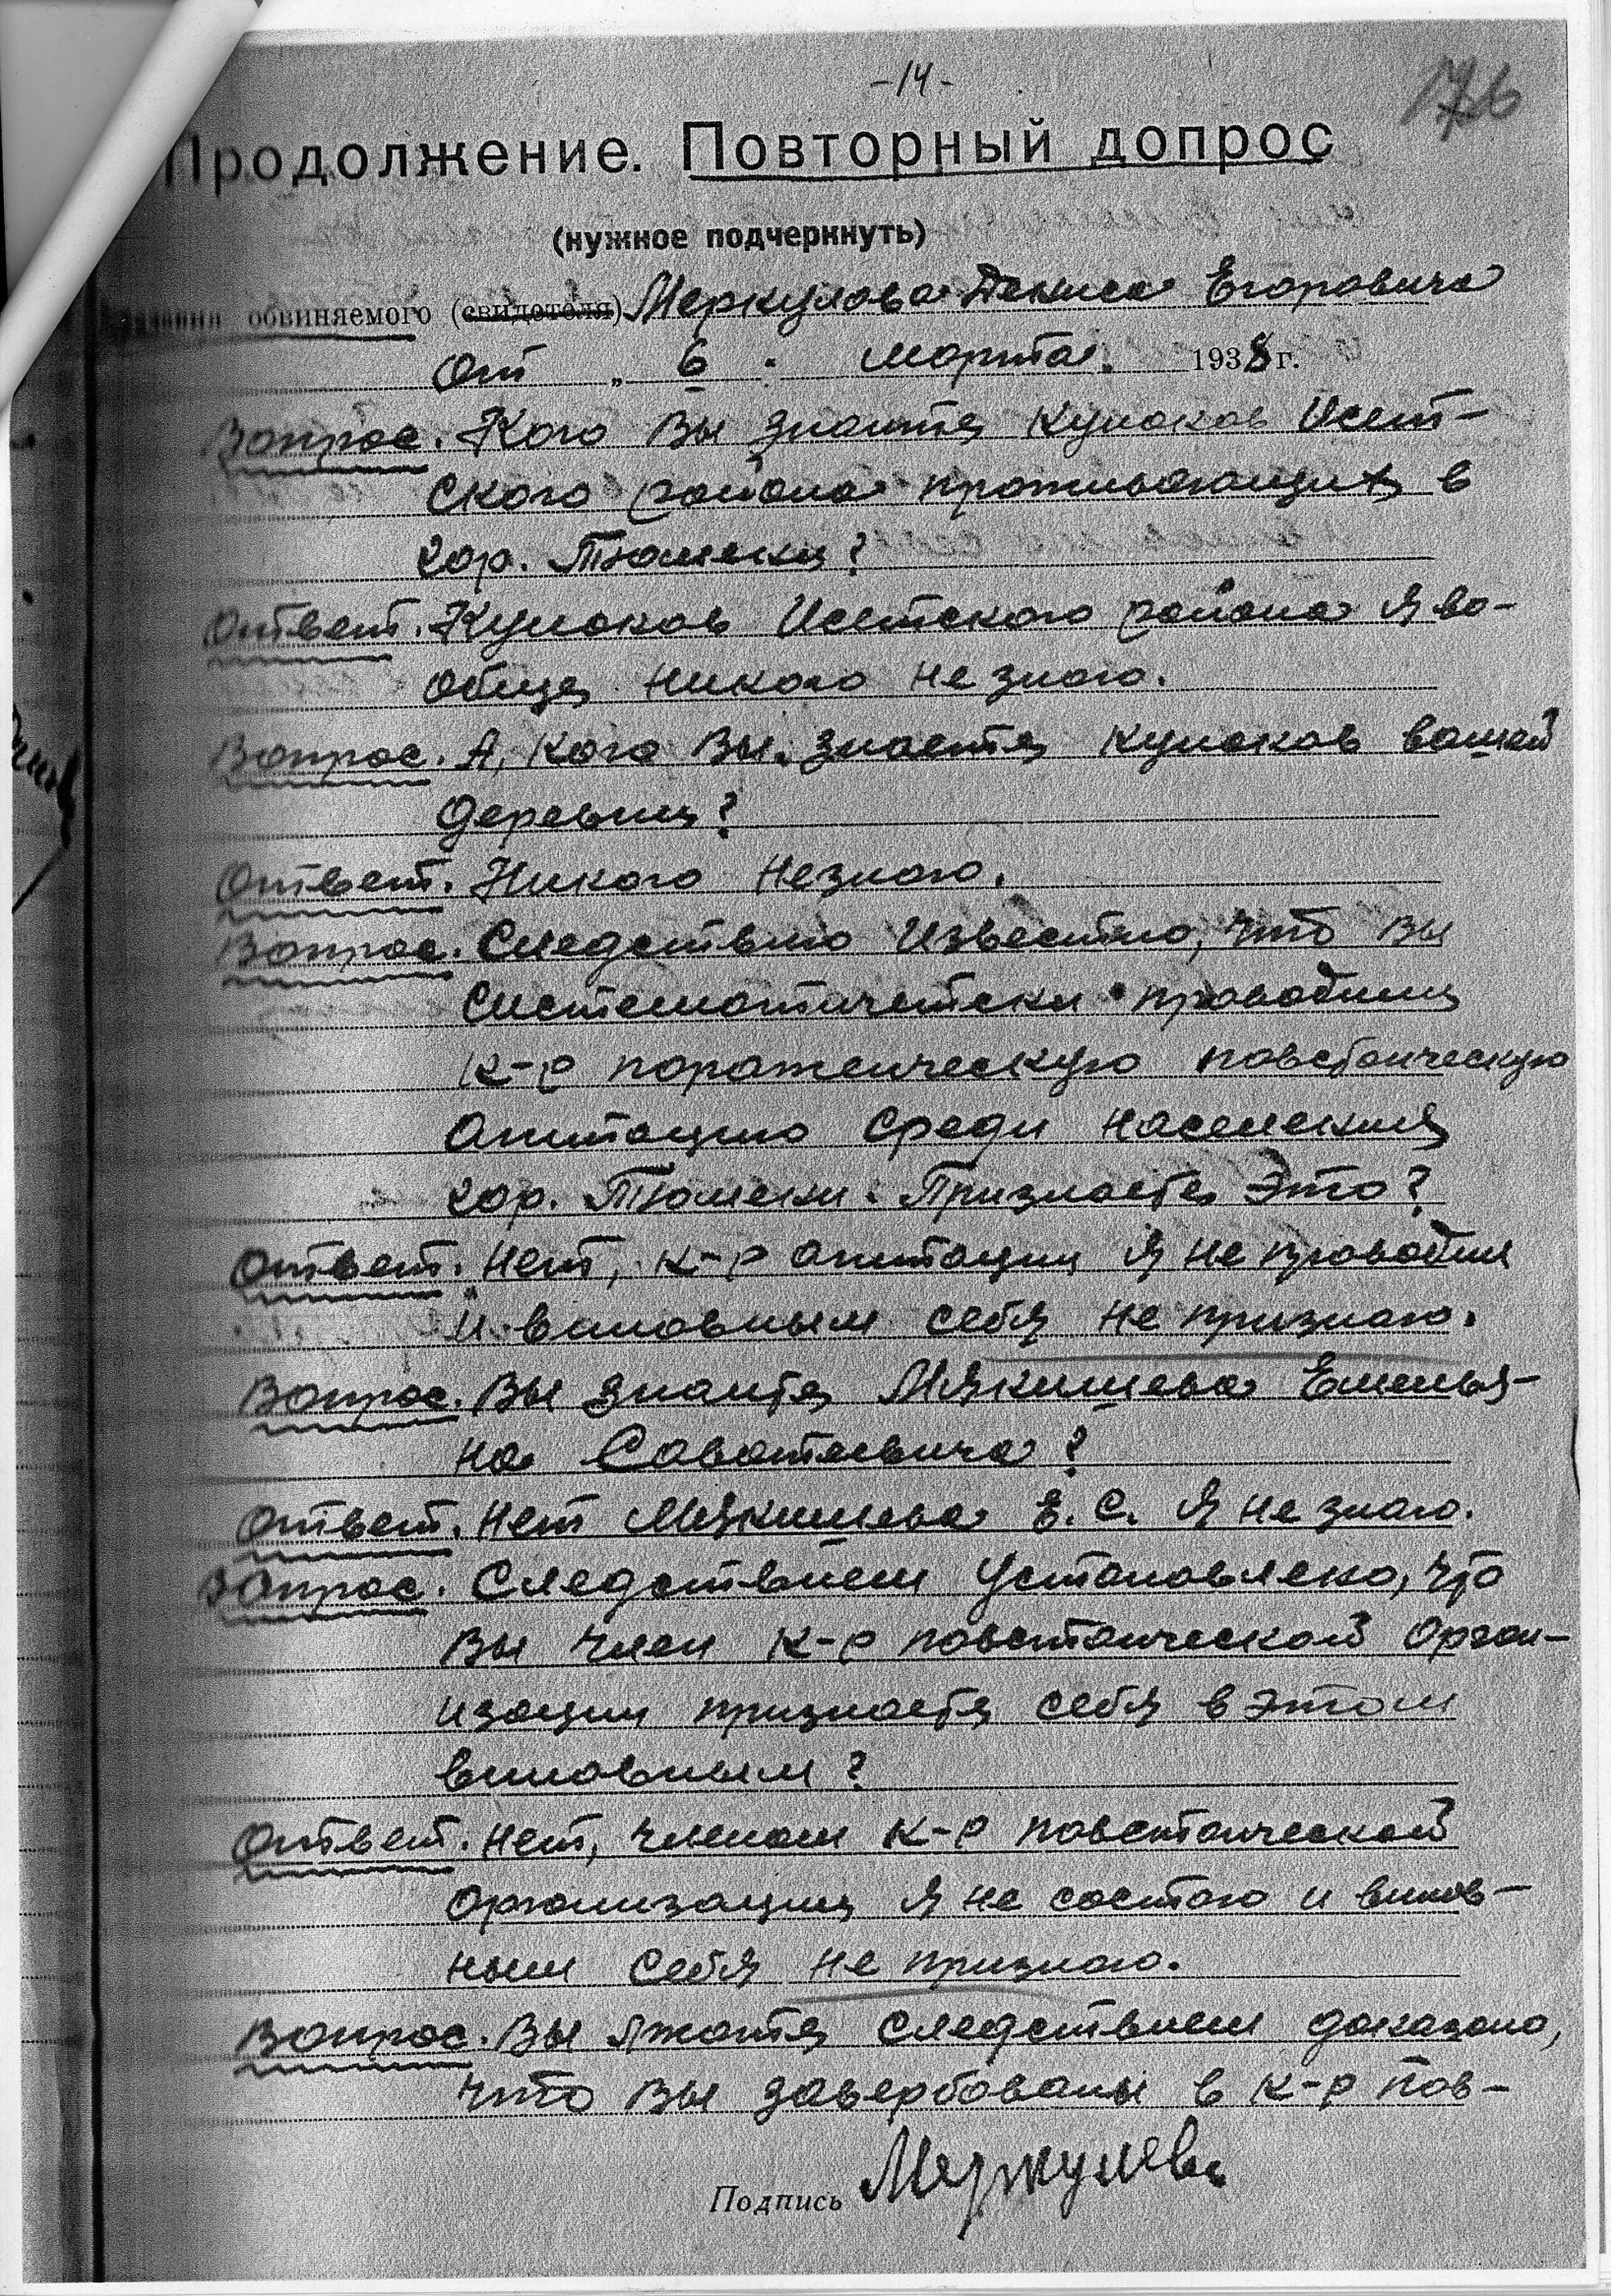 -14-
176
Продолжение. Повторный допрос
(нужное подчеркнуть)
обвиняемого (свидетеля) Меркулова Дениса Егоровича
От „ 6 " марта 1938 г.
Вопрос. Кого Вы знаите кулаков Исет-
ского района проживающих в
гор. Тюмени?
Ответ. Кулаков Исетского района я во-
обще никого не знаю.
Вопрос. А, кого Вы знаете кулаков вашей
деревни?
Ответ. Никого незнаю.
Вопрос. Следствию известно, что Вы
систематичетски проводили
к-р пораженческую повстанческую
агитацию среди населения
гор. Тюмени. Признаете это?
Ответ. Нет, к-р агитации я не проводил
и виновным себя не признаю.
Вопрос. Вы знаите Мякишева Емелья-
на Саватеевича?
Ответ. Нет Мякишева Е. С. я не знаю.
Вопрос. Следствием установлено, что
Вы член к-р повстанческой орган-
изации признаете себя в этом
виновным?
Ответ. Нет, членом к-р повстанческой
организации я не состою и винов-
ным себя не признаю.
Вопрос. Вы лжоте следствием доказано,
что Вы завербованы в к-р пов-
Подпись Меркулов